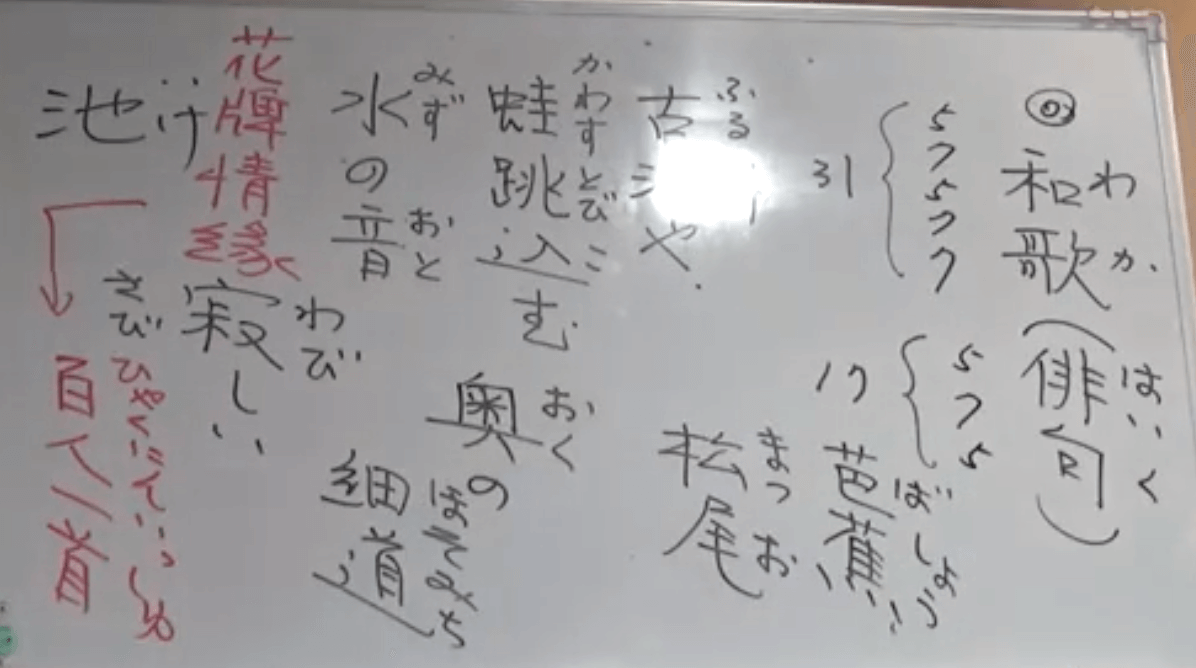 ◎
和歌(俳句)
わか はいく
5
7
5
7
7
31
5
7
5
17
芭蕉
ばしょう
松尾
まつお
古 や
ふる
蛙跳込む
かわず とびこ
水の音
みず おと
奥の
おく
細道
ほそみち
寂しい
わび
さび
花牌情缘
池け
百人一首
ひゃくにんいっしゅ